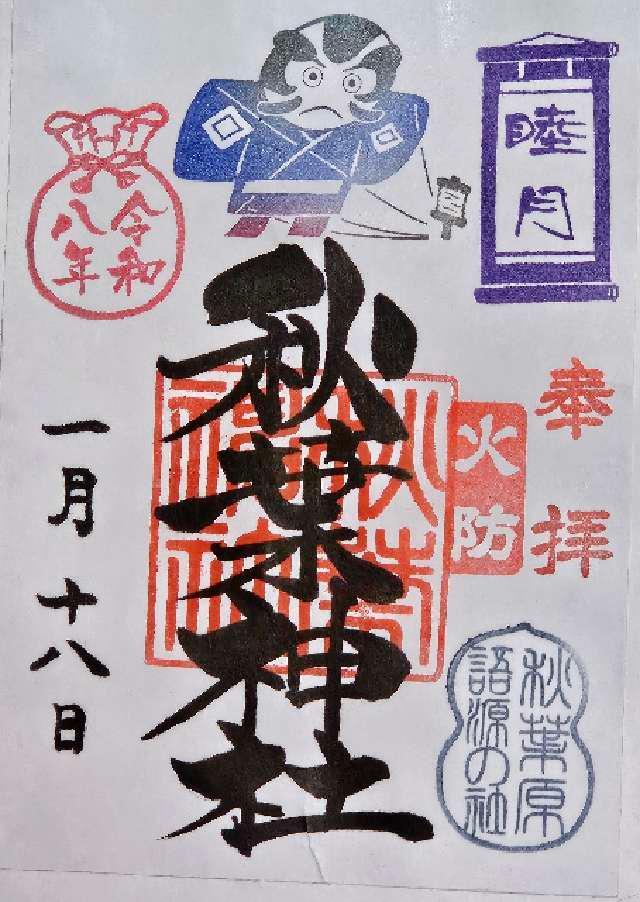 睦月
令和
八年
奉拝
火防
秋葉神社
一月十八日
秋葉原
語源の社